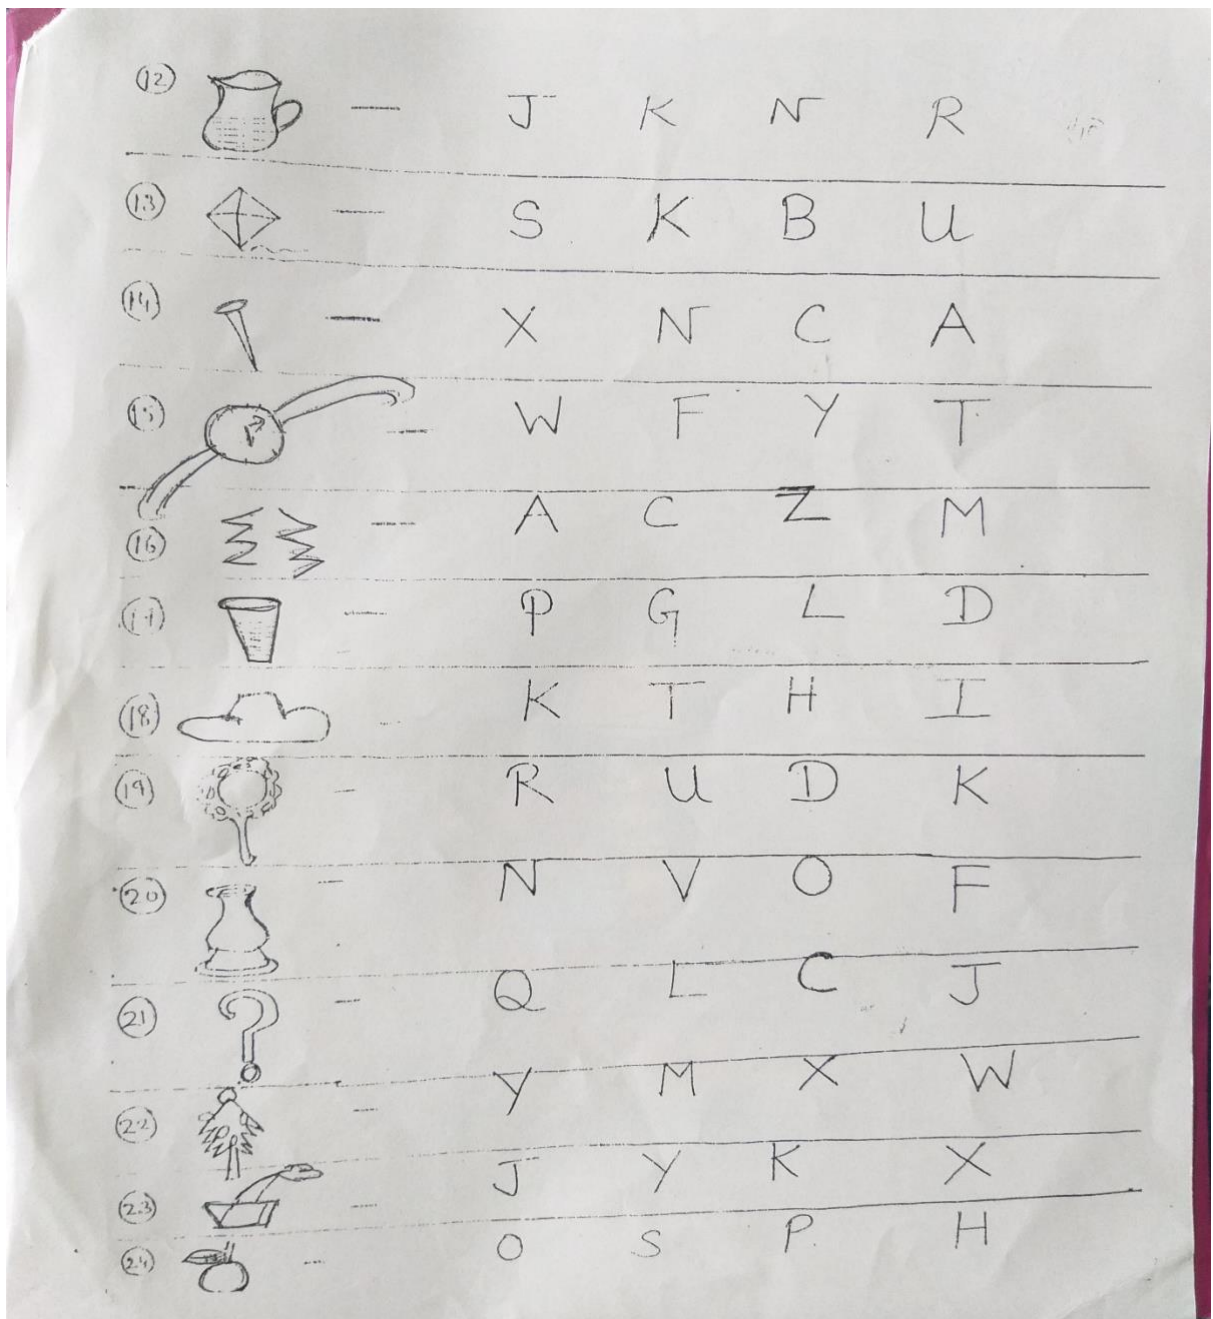 12 — J K N R
13 — S K B U
14 — X N C A
15 — W F Y T
16 — A C Z M
17 — P G L D
18 — K T H I
19 — R U D K
20 — N V O F
21 — Q L C J
22 — Y M X W
23 — J Y K X
24 — O S P H